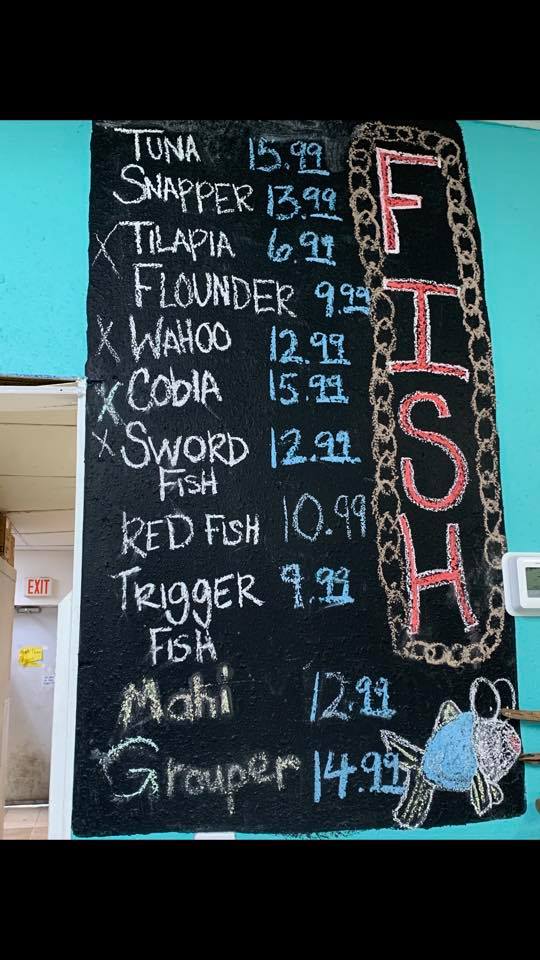 TUNA 15.99
SNAPPER 13.99
X TILAPIA 6.99
FLOUNDER 9.99
X WAHOO 12.99
X CobIA 15.99
X SWORD 12.99
FISH
RED FISH 10.99
TRIggER 9.99
FISH
Mahi 12.99
Grouper 14.99
FISH
EXIT